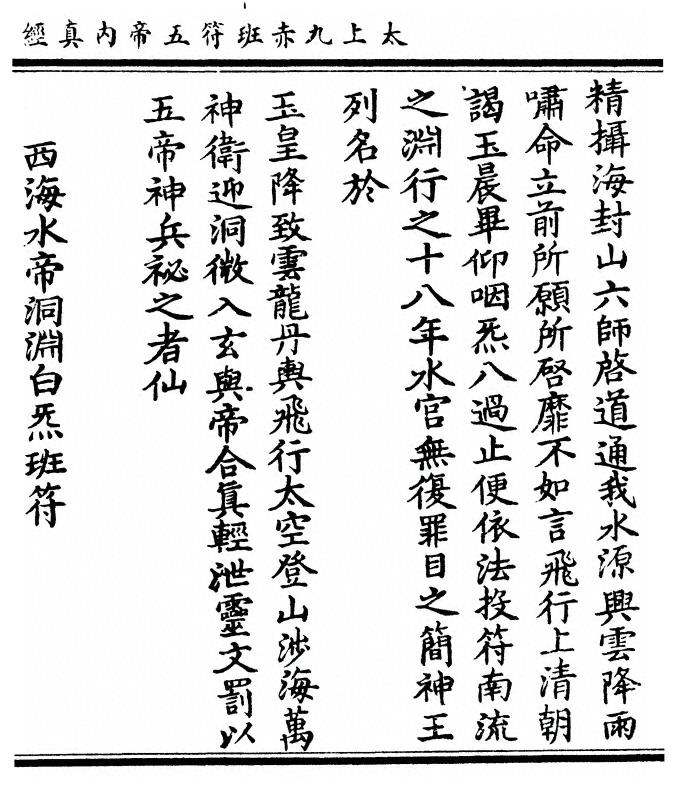 太上九赤班符五帝內真經
精攝海封山六師啓道通我水源興雲降雨
嘯命立前所願所啓靡不如言飛行上清朝
謁玉晨畢仰咽炁八過止便依法投符南流
之淵行之十八年水官無復罪目之簡神王
列名於
玉皇降致雲龍丹輿飛行太空登山涉海萬
神衛迎洞微入玄與帝合真輕泄靈文罰以
五帝神兵祕之者仙
西海水帝洞淵白炁班符